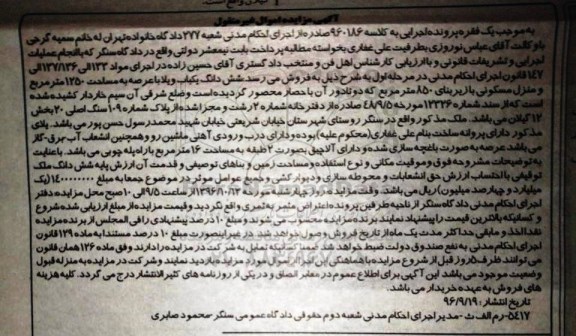 آگهی مزایده اموال غیر منقول
به موجب یک فقره پرونده اجرایی به کلاسه ۹۶۰۱۸۶ صادره از اجرای احکام مدنی شعبه ۲۷۷ دادگاه خانواده تهران له خانم سمیه گرجی
با وکالت آقای عباس نوروزی بطرفیت علی غفاری بخواسته مطالبه پرداخت بابت نیم عشر دولتی واقع در دادگاه سنگر که با انجام عملیات
اجرایی و تشریفات قانونی و با ارزیابی کارشناس اهل فن و منتخب دادگستری آقای حسین زاده در اجرای مواد ۱۳۳ الی ۱۳۷/۱۳۶ الی
۱۴۷ قانون اجرای احکام مدنی در مرحله اول به شرح ذیل به فروش می رسد شش دانگ یکباب ویلا با عرصه به مساحت ۱۲۵۰ مترمربع
و منزل مسکونی با زیربنای ۸۵۰ مترمربع که دو تا دور آن با حصار محصور گردیده است و ضلع شرقی آن سیم خاردار کشیده شده
است که از سند شماره ۱۳۳۲۶ مورخه ۴۸/۹/۵ صادره از دفترخانه شماره ۲ رشت و مجزا شده از پلاک شماره ۱۰۹ سنگ اصلی ۲۰ بخش
۱۲ گیلان می باشد. ملک مذکور واقع در سنگر روستای شهرستان خیابان شریعتی خیابان شهید محمدرسول حسن پور می باشد. بنای
مذکور دارای پروانه ساخت بنام علی غفاری (محکوم علیه) بوده و دارای درب ورودی آهنی ماشین رو و همچنین انشعاب آب-برق-گاز
می باشد عرصه به صورت باغچه سازی شده و دارای آلاچیق بصورت ۲ طبقه به مساحت ۱۶ مترمربع با راه پله چوبی می باشد. با عنایت
به توضیحات مشروحه فوق و موقعیت مکانی و نوع استفاده و مساحت زمین و بناهای توصیفی و قدمت آن ارزش پایه شش دانگ ملک
توقیفی با احتساب ارزش حق انشعابات و محوطه سازی و دیوارکشی و جمیع عوامل موثر در موضوع جمعا به مبلغ ۱۴۰۰۰۰۰۰۰۰ (یک
میلیارد و چهارصد میلیون) ریال می باشد وقت مزایده
اجرای احکام مدنی دادگاه سنگر از ناحیه طرفین پرونده اعتراض مثمر به ثمری واقع نگردید و قیمت مزایده از مبلغ ارزیابی شده شروع
و کسانیکه بالاترین قیمت را پیشنهاد نمایند برنده مزایده محسوب می شوند و مبلغ ۱۰ درصد پیشنهادی را فی المجلس از برنده مزایده
نقدا اخذ و مابقی حداکثر مدت یک ماه از تاریخ فروش وصول خواهد شد در غیر اینصورت مبلغ ۱۰ درصد مستندا به ماده ۱۲۹ قانون
اجرای احکام مدنی به نفع صندوق دولت ضبط خواهد شد ضمنا کسانیکه تمایل به شرکت در مزایده را دارند وفق ماده ۱۲۶ همان قانون
می توانند ظرف ۵ روز قبل از شروع مزایده با هماهنگی این اجرا از اموال مورد مزایده بازدید نمایند و شرکت در مزایده به منزله قبول
وضعیت موجود می باشد این آگهی برای اطلاع عموم در معابر الصاق و در یکی از روزنامه های کثیرالانتشار درج می گردد. کلیه هزینه
های فروش به عهده خریدار می باشد.
تاریخ انتشار: ۹۶/۹/۱۹
۵۴۱۷-رم الف ث - مدیر اجرای احکام مدنی شعبه دوم حقوقی دادگاه عمومی سنگر محمود صابری